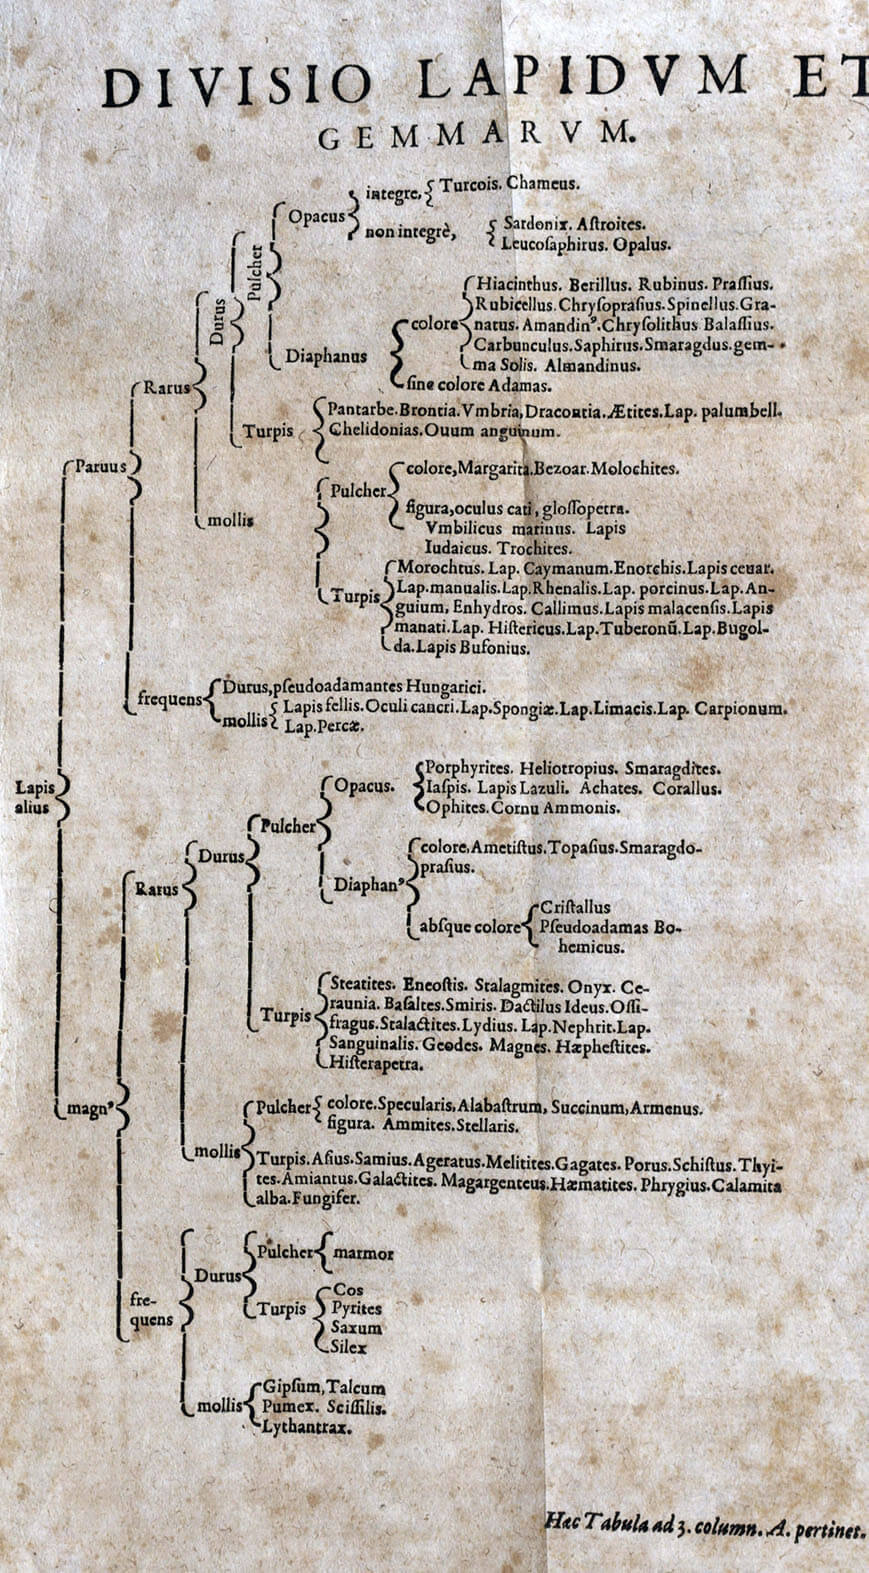 DIVISIO LAPIDVM ET
GEMMARVM.
integre, Turcois. Chameus.
Opacus
non integrè,
Sardonix. Aſtroites.
Leucoſaphirus. Opalus.
Pulcher
Durus
Hiacinthus. Berillus. Rubinus. Praſſius.
Rubicellus. Chryſopraſius. Spinellus. Gra-
colore natus. Amandinꝰ. Chryſolithus Balaſſius.
Carbunculus. Saphirus. Smaragdus. gem-
Diaphanus
ma Solis. Almandinus.
ſine colore Adamas.
Rarus
Pantarbe. Brontia. Vmbria, Dracontia. Ætites. Lap. palumbell.
Turpis Chelidonias. Ouum anguinum.
Paruus
colore, Margarita. Bezoar. Molochites.
Pulcher
figura, oculus cati, gloſſopetra.
mollis
Vmbilicus marinus. Lapis
Iudaicus. Trochites.
Morochtus. Lap. Caymanum. Enorchis. Lapis ceuar.
Turpis Lap. manualis. Lap. Rhenalis. Lap. porcinus. Lap. An-
guium, Enhydros. Callimus. Lapis malacenſis. Lapis
manati. Lap. Hiſtericus. Lap. Tuberonū. Lap. Bugol-
da. Lapis Bufonius.
Durus, pſeudoadamantes Hungarici.
frequens
mollis Lapis fellis. Oculi cancri. Lap. Spongiæ. Lap. Limacis. Lap. Carpionum.
Lap. Percæ.
Lapis
alius
Porphyrites. Heliotropius. Smaragdites.
Opacus. Iaſpis. Lapis Lazuli. Achates. Corallus.
Ophites. Cornu Ammonis.
Pulcher
Durus
colore, Ametiſtus. Topaſius. Smaragdo-
praſius.
Rarus
Diaphanꝰ
Criſtallus
abſque colore Pſeudoadamas Bo-
hemicus.
Steatites. Eneoſtis. Stalagmites. Onyx. Ce-
raunia. Baſaltes. Smiris. Dactilus Ideus. Oſſi-
Turpis fragus. Stalactites. Lydius. Lap. Nephrit. Lap.
Sanguinalis. Geodes. Magnes. Hæpheſtites.
Hiſterapetra.
magnꝰ
Pulcher colore. Specularis, Alabaſtrum, Succinum, Armenus.
figura. Ammites. Stellaris.
mollis
Turpis. Aſius. Samius. Ageratus. Melitites. Gagates. Porus. Schiſtus. Thyi-
tes. Amiantus. Galactites. Magargenteus. Hæmatites. Phrygius. Calamita
alba. Fungifer.
Pulcher marmor
Durus
fre-
quens
Turpis
Cos
Pyrites
Saxum
Silex
Gipſum, Talcum
mollis Pumex. Sciſſilis.
Lythantrax.
Hæc Tabula ad 3. column. A. pertinet.